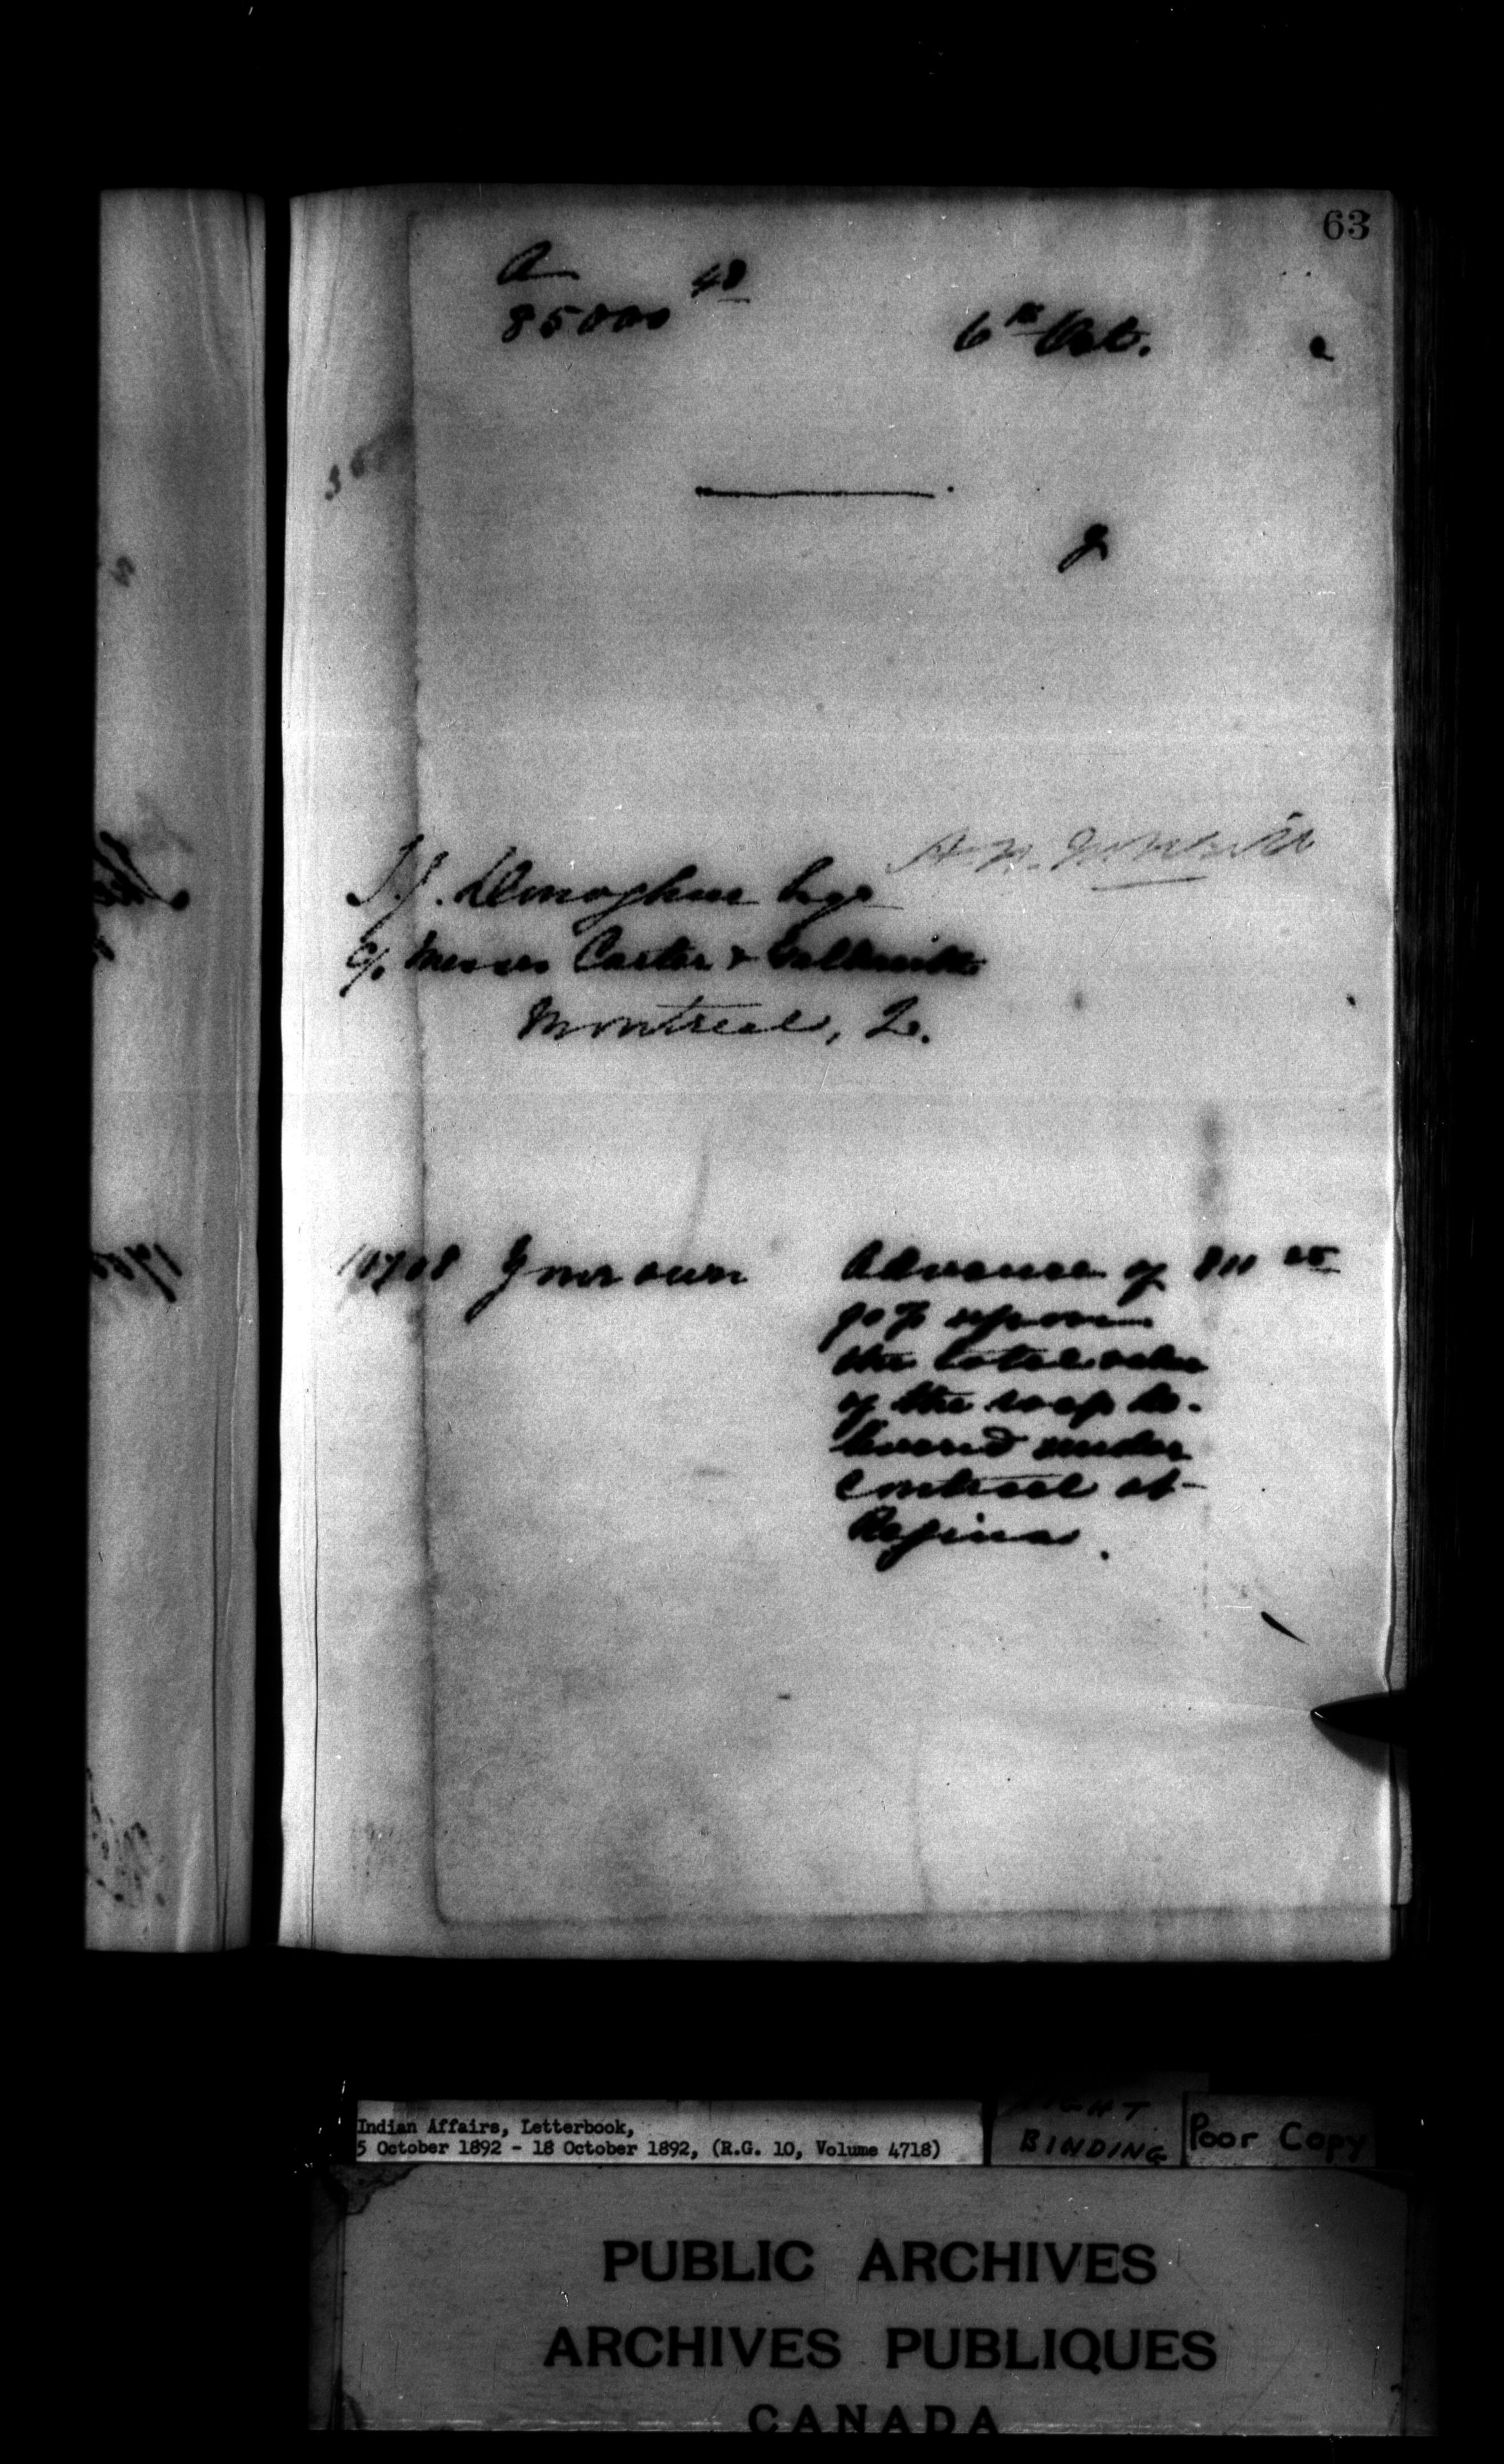 63
A
85000 40
6th Oct.
J. J. Donoghue Esq
c/o Messrs Carter &
Montreal, Q.
Your own Advance of 811 25
90% upon
the total value
of the soap de-
livered under
contract at
Regina.
Indian Affairs, Letterbook,
5 October 1892 - 18 October 1892, (R.G. 10, Volume 4718)
BINDING
Poor Copy
PUBLIC ARCHIVES
ARCHIVES PUBLIQUES
CANADA